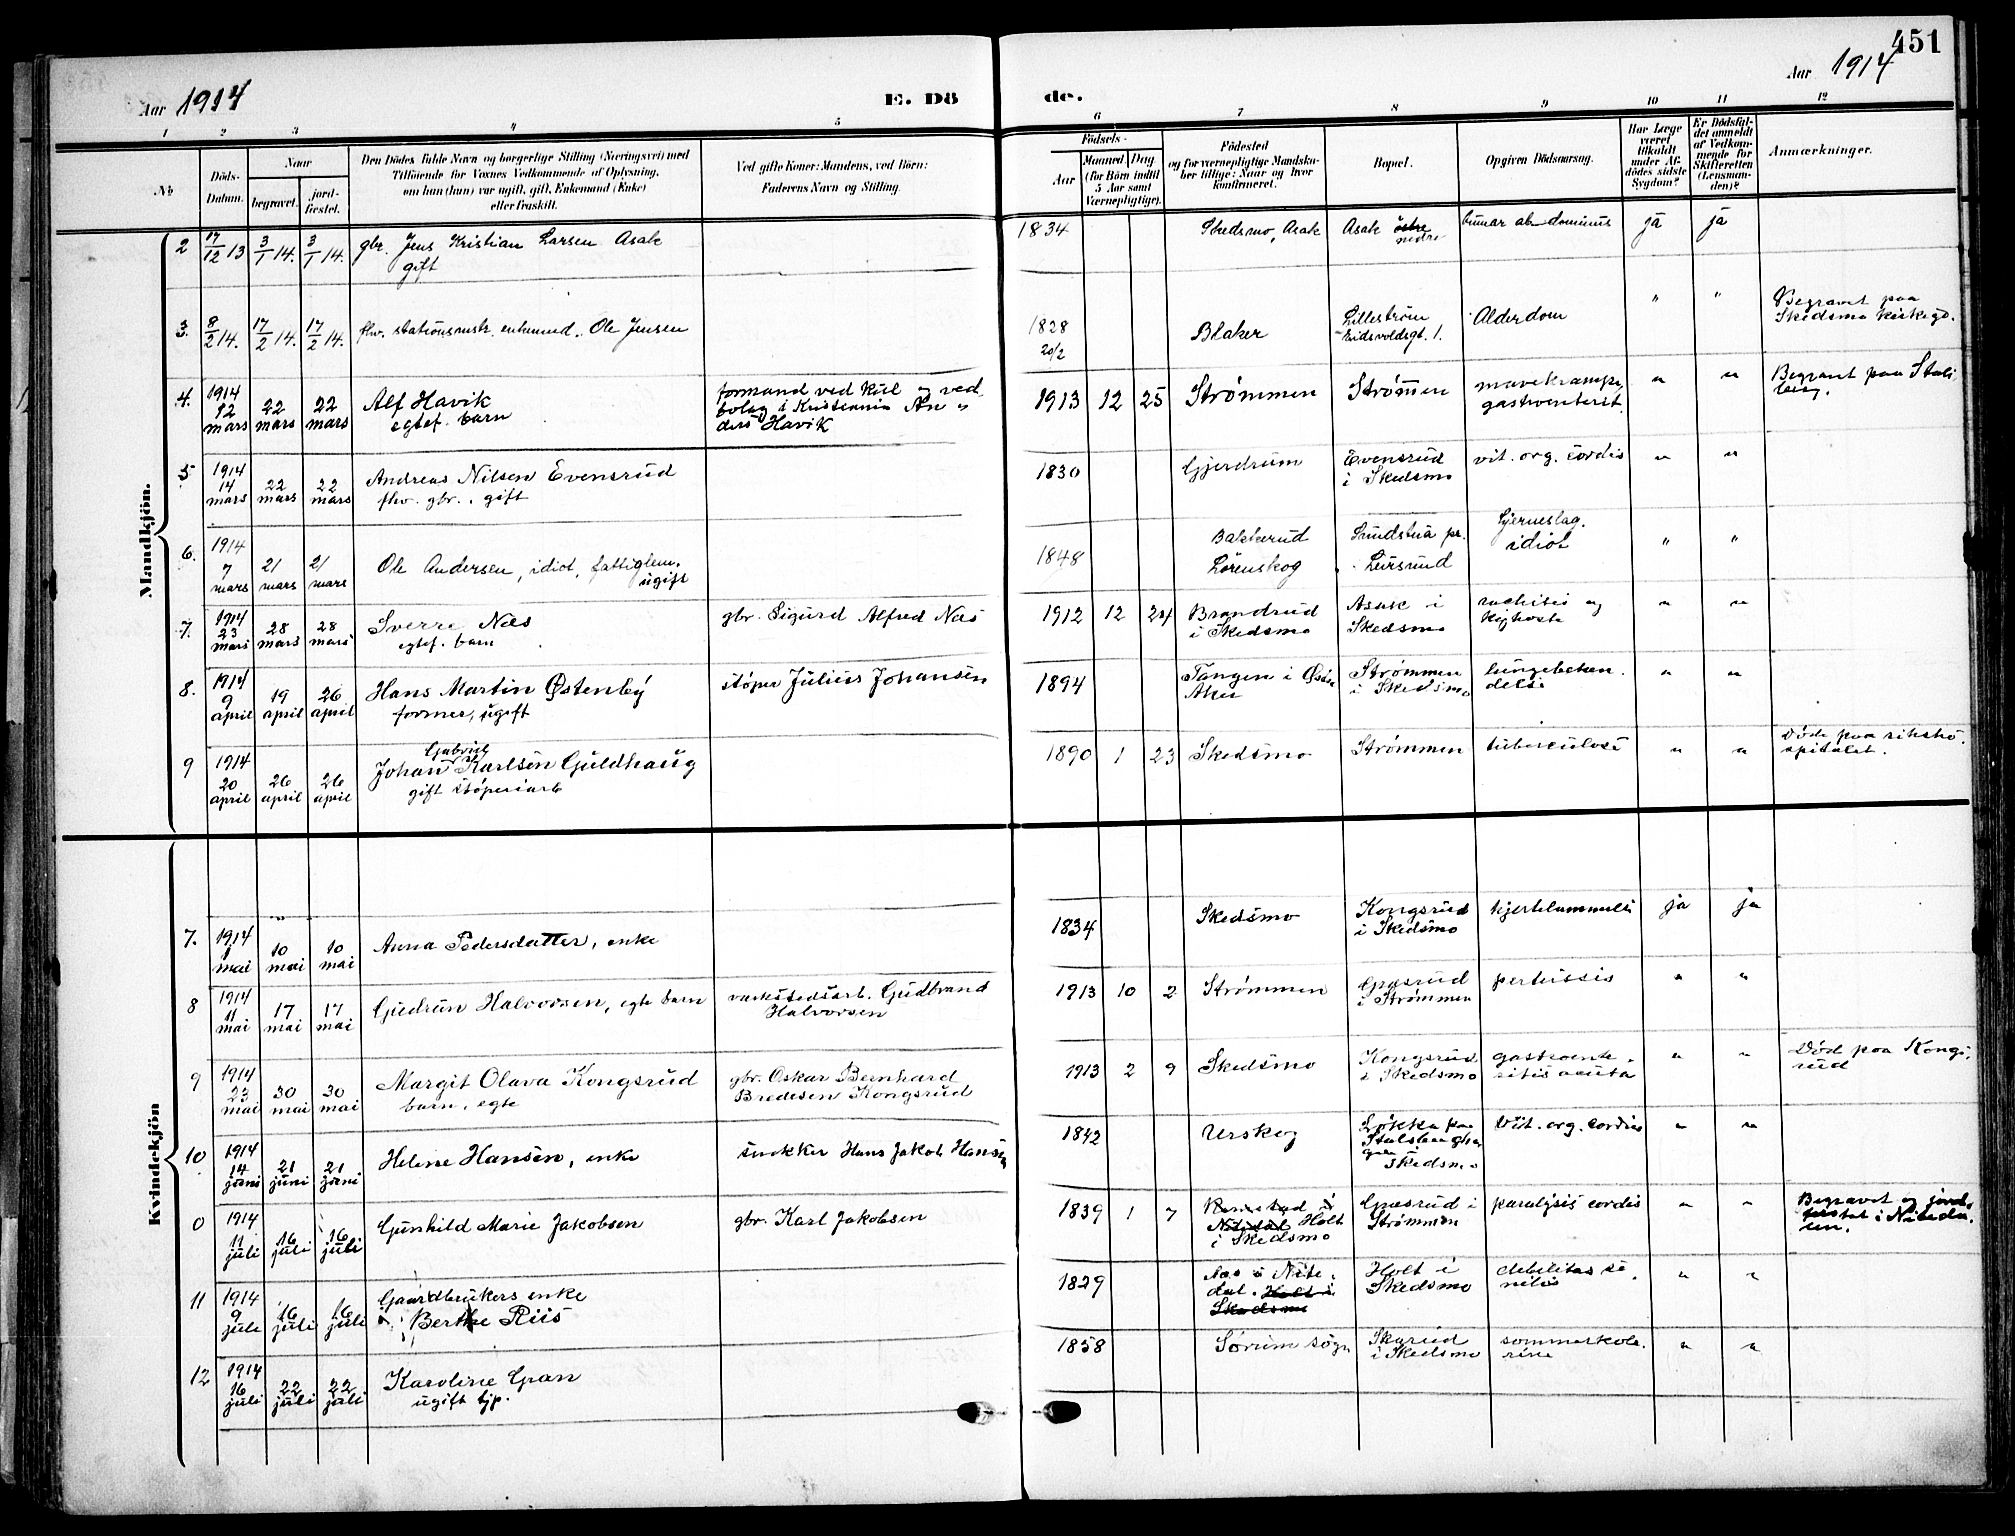 451
Aar 1914
E. Dö
de.
Aar 1914
1 2 3 4 5 6 7 8 9 10 11 12
No
Döds-Datum.
Naar
begravet.
jord-fæstet.
Den Dödes fulde Navn og borgerlige Stilling (Næringsvei) med
Tilföiende for Voxnes Vedkommende af Oplysning,
om han (hun) var ugift, gift, Enkemand (Enke)
eller fraskilt.
Ved gifte Koner: Mandens, ved Börn:
Faderens Navn og Stilling.
Födsels-
Aar
Maaned (for Börn indtil 5 Aar samt Værnepligtige).
Dag
Födested
og for værnepligtige Mandska-
ber tillige: Naar og hvor
konfirmeret.
Bopæl.
Opgiven Dödsaarsag.
Har Læge været tilkaldt under Af-dödes sidste Sygdom?
Er Dödsfal-det anmeldt af Vedkom-mende for Skifteretten (Lensman-den)?
Anmærkninger.
Mandkjön.
2 17/12 13 3/1 14. 3/1 14. gbr. Jens Kristian Larsen Asak 1834 Skedsmo, Asak Asak nedre abdominus ja ja
gift
3. 8/2 14. 17/2 14. 17/2 14. fhv. stationsmstr. enkemand. Ole Jensen 1828 20/2 Blaker Lillestrøm Eidsvoldsgt. 1. Alderdom " " Begravet paa Skedsmo kirkegd.
4. 1914 12 mars 22 mars 22 mars Alf Havik formand ved kul og ved-
egtef. barn bolag i Kristiania An-
ders Havik 1913 12 25 Strømmen Strømmen mavekrampe, gastroenterit. " " Begravet paa Stals-berg.
5 1914 14 mars 22 mars 22 mars Andreas Nilsen Evensrud 1830 Gjerdrum Evensrud i Skedsmo vit. org. cordis " "
fhv. gbr., gift
6. 1914 7 mars 21 mars 21 mars Ole Andersen, idiot, fattiglem. 1848 Bakkerud Lørenskog Sundstua pr. Leirsund Hjerneslag. idiot " "
ugift
7. 1914 23 mars 28 mars 28 mars Sverre Næs gbr. Sigurd Alfred Næs 1912 12 24 Brandrud i Skedsmo Asak i Skedsmo rachitis og kighoste " "
egtef. barn
8. 1914 9 april 19 april 26 april Hans Martin Østenby støper Julius Johansen 1894 Tangen i Østre Aker Strømmen i Skedsmo lungebeten-delse " "
former, ugift
9 1914 20 april 26 april 26 april Johan Gabriel Karlsen Guldhaug 1890 1 23 Skedsmo Strømmen tuberculose " " Døde paa rikshospitalet.
gift støperiarb
Kvindekjön
7. 1914 1 mai 10 mai 10 mai Anna Pedersdatter, enke 1834 Skedsmo Kongsrud i Skedsmo hjertelammelse ja ja
8 1914 11 mai 17 mai 17 mai Gudrun Halvorsen, egte barn verkstedsarb. Gudbrand
Halvorsen 1913 10 2 Strømmen Gaasrud i Strømmen pertussis " "
9 1914 23 mai 30 mai 30 mai Margit Olava Kongsrud gbr. Oskar Bernhard
barn, egte Bredesen Kongsrud 1913 2 9 Skedsmo Kongsrud i Skedsmo gastroente-ritis acuta " " Død paa Kongs-rud
10 1914 14 juni 21 juni 21 juni Helene Hansen, enke snekker Hans Jakob Hansen 1842 Urskog Løkka paa i Skedsmo Vit. org. cordis " "
0 1914 11 juli 16 juli 16 juli Gunhild Marie Jakobsen gbr. Karl Jakobsen 1839 1 7 Nitedal Holt i Skedsmo Gaasrud i Strømmen paralysis cordis " " Begravet og jord-festet i Niteda-len.
11 1914 9 juli 16 juli 16 juli Gaardbrukers enke
Berthe Riis 1829 Aas i Nite-dal. Holt i Skedsmo Holt i Skedsmo debilitas se-nilis " "
12 1914 16 juli 22 juli 22 juli Karoline Gran 1858 Sørum sogn i Skedsmo sommerkole-rine " "
ugift tjp.